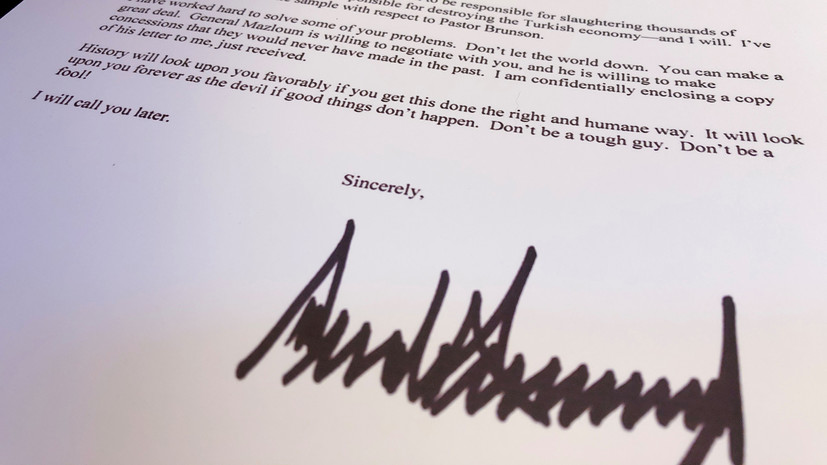 to be responsible for slaughtering thousands of
for destroying the Turkish economy—and I will. I've
sample with respect to Pastor Brunson.
have worked hard to solve some of your problems. Don't let the world down. You can make a
great deal. General Mazloum is willing to negotiate with you, and he is willing to make
concessions that they would never have made in the past. I am confidentially enclosing a copy
of his letter to me, just received.
History will look upon you favorably if you get this done the right and humane way. It will look
upon you forever as the devil if good things don't happen. Don't be a tough guy. Don't be a
fool!
I will call you later.
Sincerely,